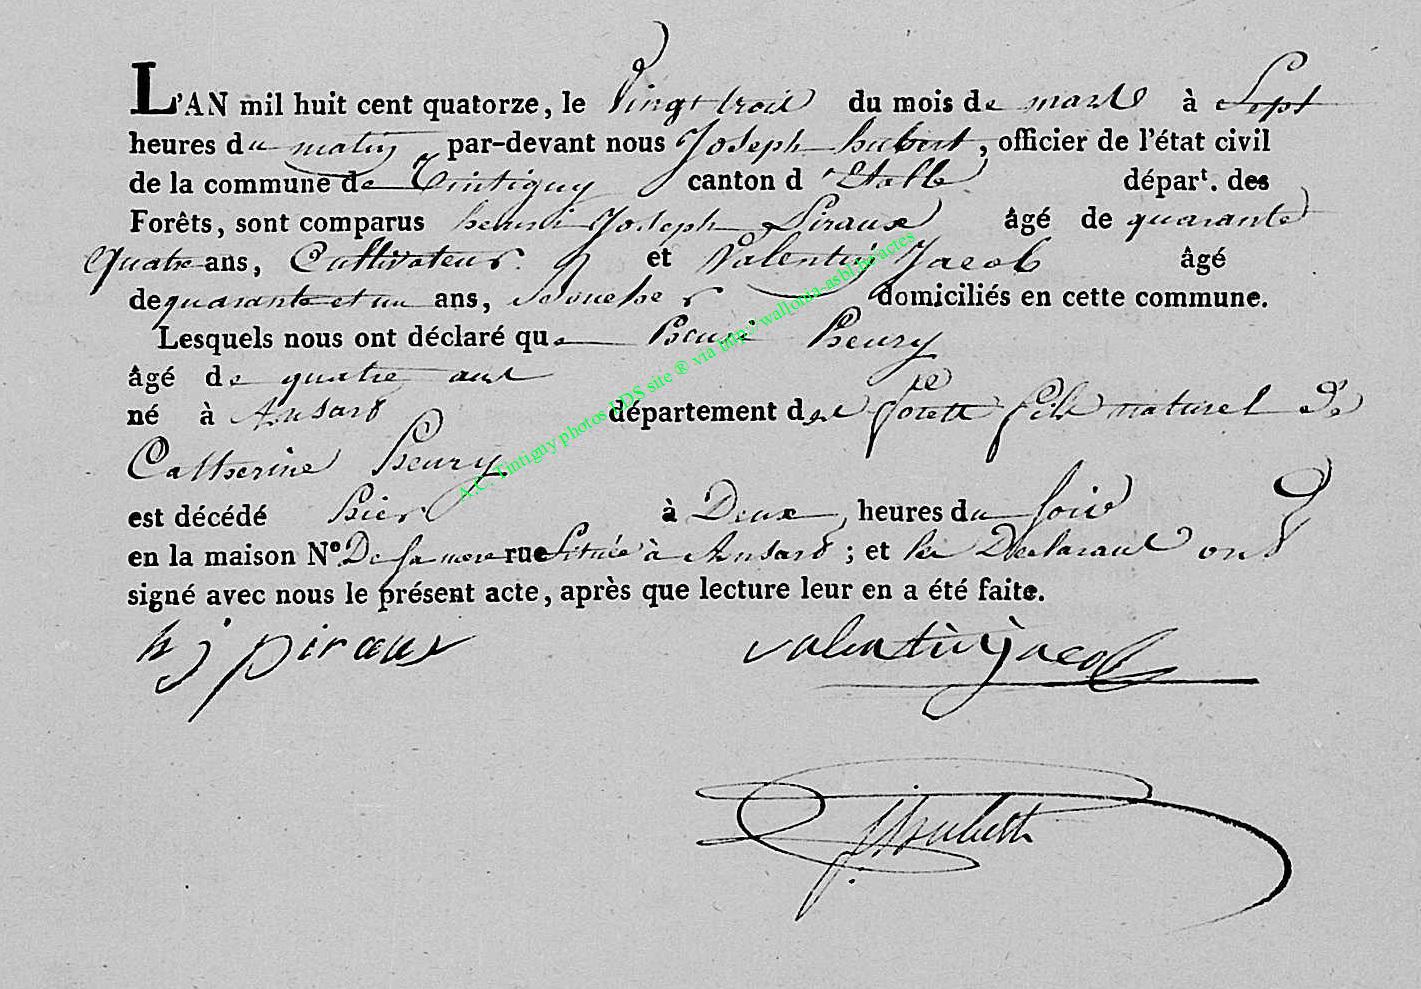 L'AN mil huit cent quatorze, le Vingt trois du mois de mars à Sept
heures du matin par-devant nous Joseph hubert, officier de l'état civil
de la commune de Tintigny canton d'Etalle départ. des
Forêts, sont comparus henri Joseph Piraux âgé de quarante
Quatre ans, Cultivateur et Valentin Jacob âgé
de quarante et un ans, domiciliés en cette commune.
Lesquels nous ont déclaré que Henri Henry
âgé de quatre ans
né à Ansart département des forets fils naturel de
Catherine Henry
est décédé hier à Deux heures du soir
en la maison N° De sa mere rue située à Ansart; et les Declarant ont
signé avec nous le présent acte, après que lecture leur en a été faite.
h j piraux valentin jacob
J. hubert
A.C. Tintigny photos LDS site ® via http://wallonia-asbl.be/actes